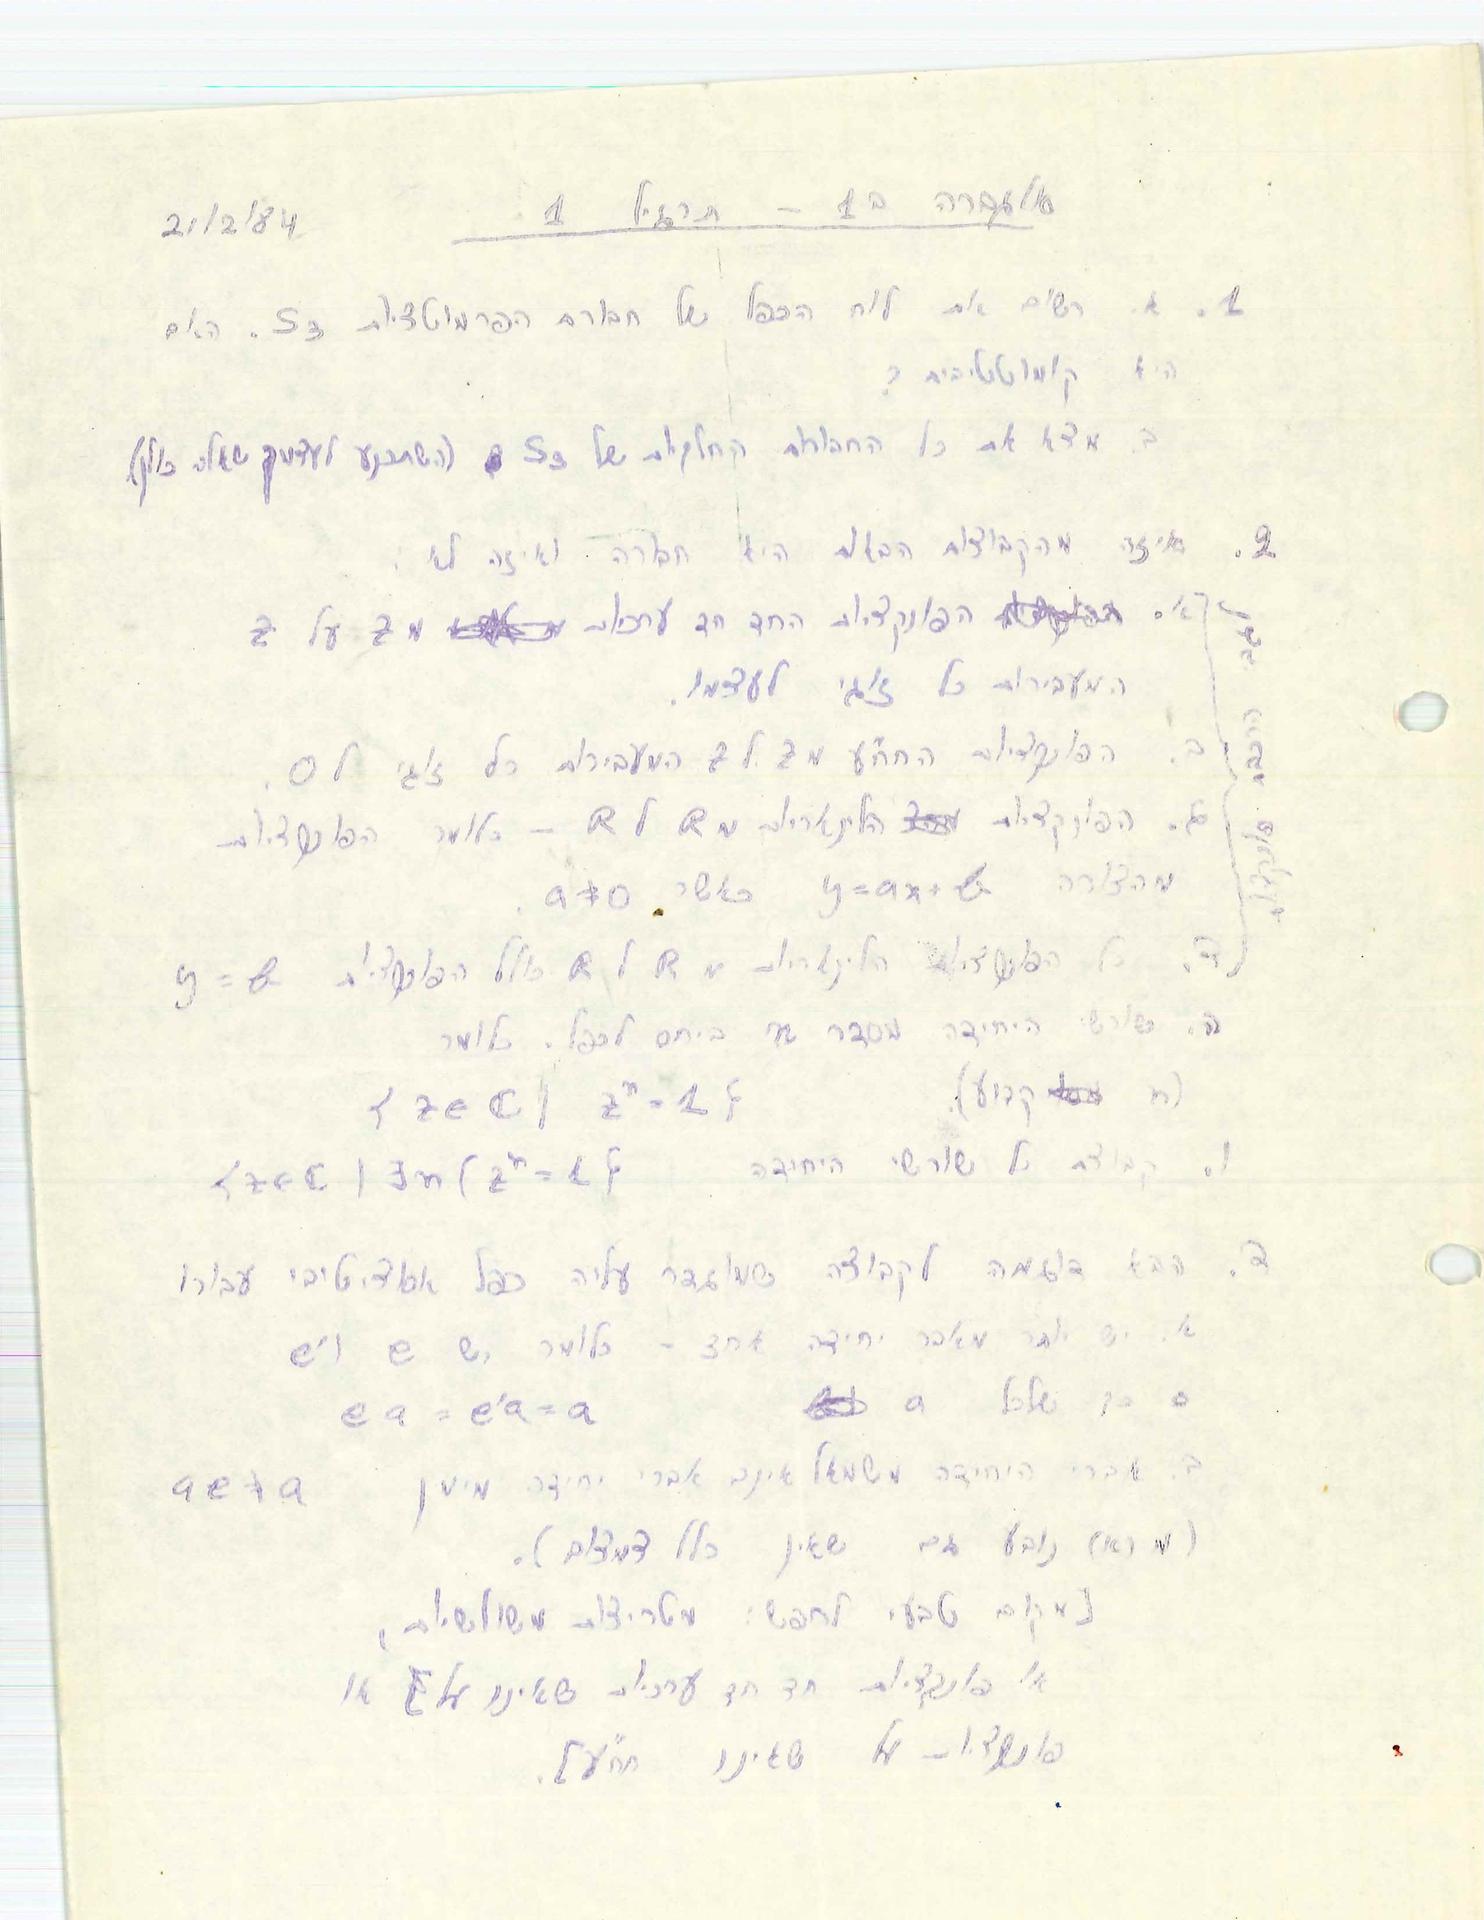 אלגברה ב1 – תרגיל 1
21/2/84
1. א. רשום את לוח הכפל של חבורת הפרמוטציות S₃. האם
היא קומוטטיבית?
ב. מצא את כל החבורות החלקיות של S₃ (השתכנע לעצמך שאלו כולן)
2. איזה מהקבוצות הבאות היא חבורה ואיזה לא:
א. הפונקציות החד חד ערכיות מ Z על Z
המעבירות כל זוגי לעצמו.
ב. הפונקציות החח"ע מ Z ל Z המעבירות כל זוגי ל 0.
ג. הפונקציות הלינאריות מ R ל R – כלומר הפונקציות
מהצורה y=ax+b כאשר a≠0.
ד. כל הפונקציות הלינאריות מ R ל R כולל הפונקציות y=b
לגבי הרכבת פונקציות
ה. שורשי היחידה מסדר n ביחס לכפל. כלומר
(n קבוע). {z∈C | zⁿ=1}
ו. קבוצת כל שורשי היחידה {z∈C | ∃n zⁿ=1}
3. הבא דוגמה לקבוצה שמוגדר עליה כפל אסוציטיבי עבורו
א. יש יותר מאבר יחידה אחד – כלומר יש e ו e'
כך שלכל a ea=e'a=a
ב. אברי היחידה משמאל אינם אברי יחידה מימין ae≠a
(מ נובע גם שאין כלל צמצום).
[מקום טבעי לחפש: מטריצות משולשיות,
או פונקציות חד חד ערכיות שאינן על או
פונקציות על שאינן חח"ע].